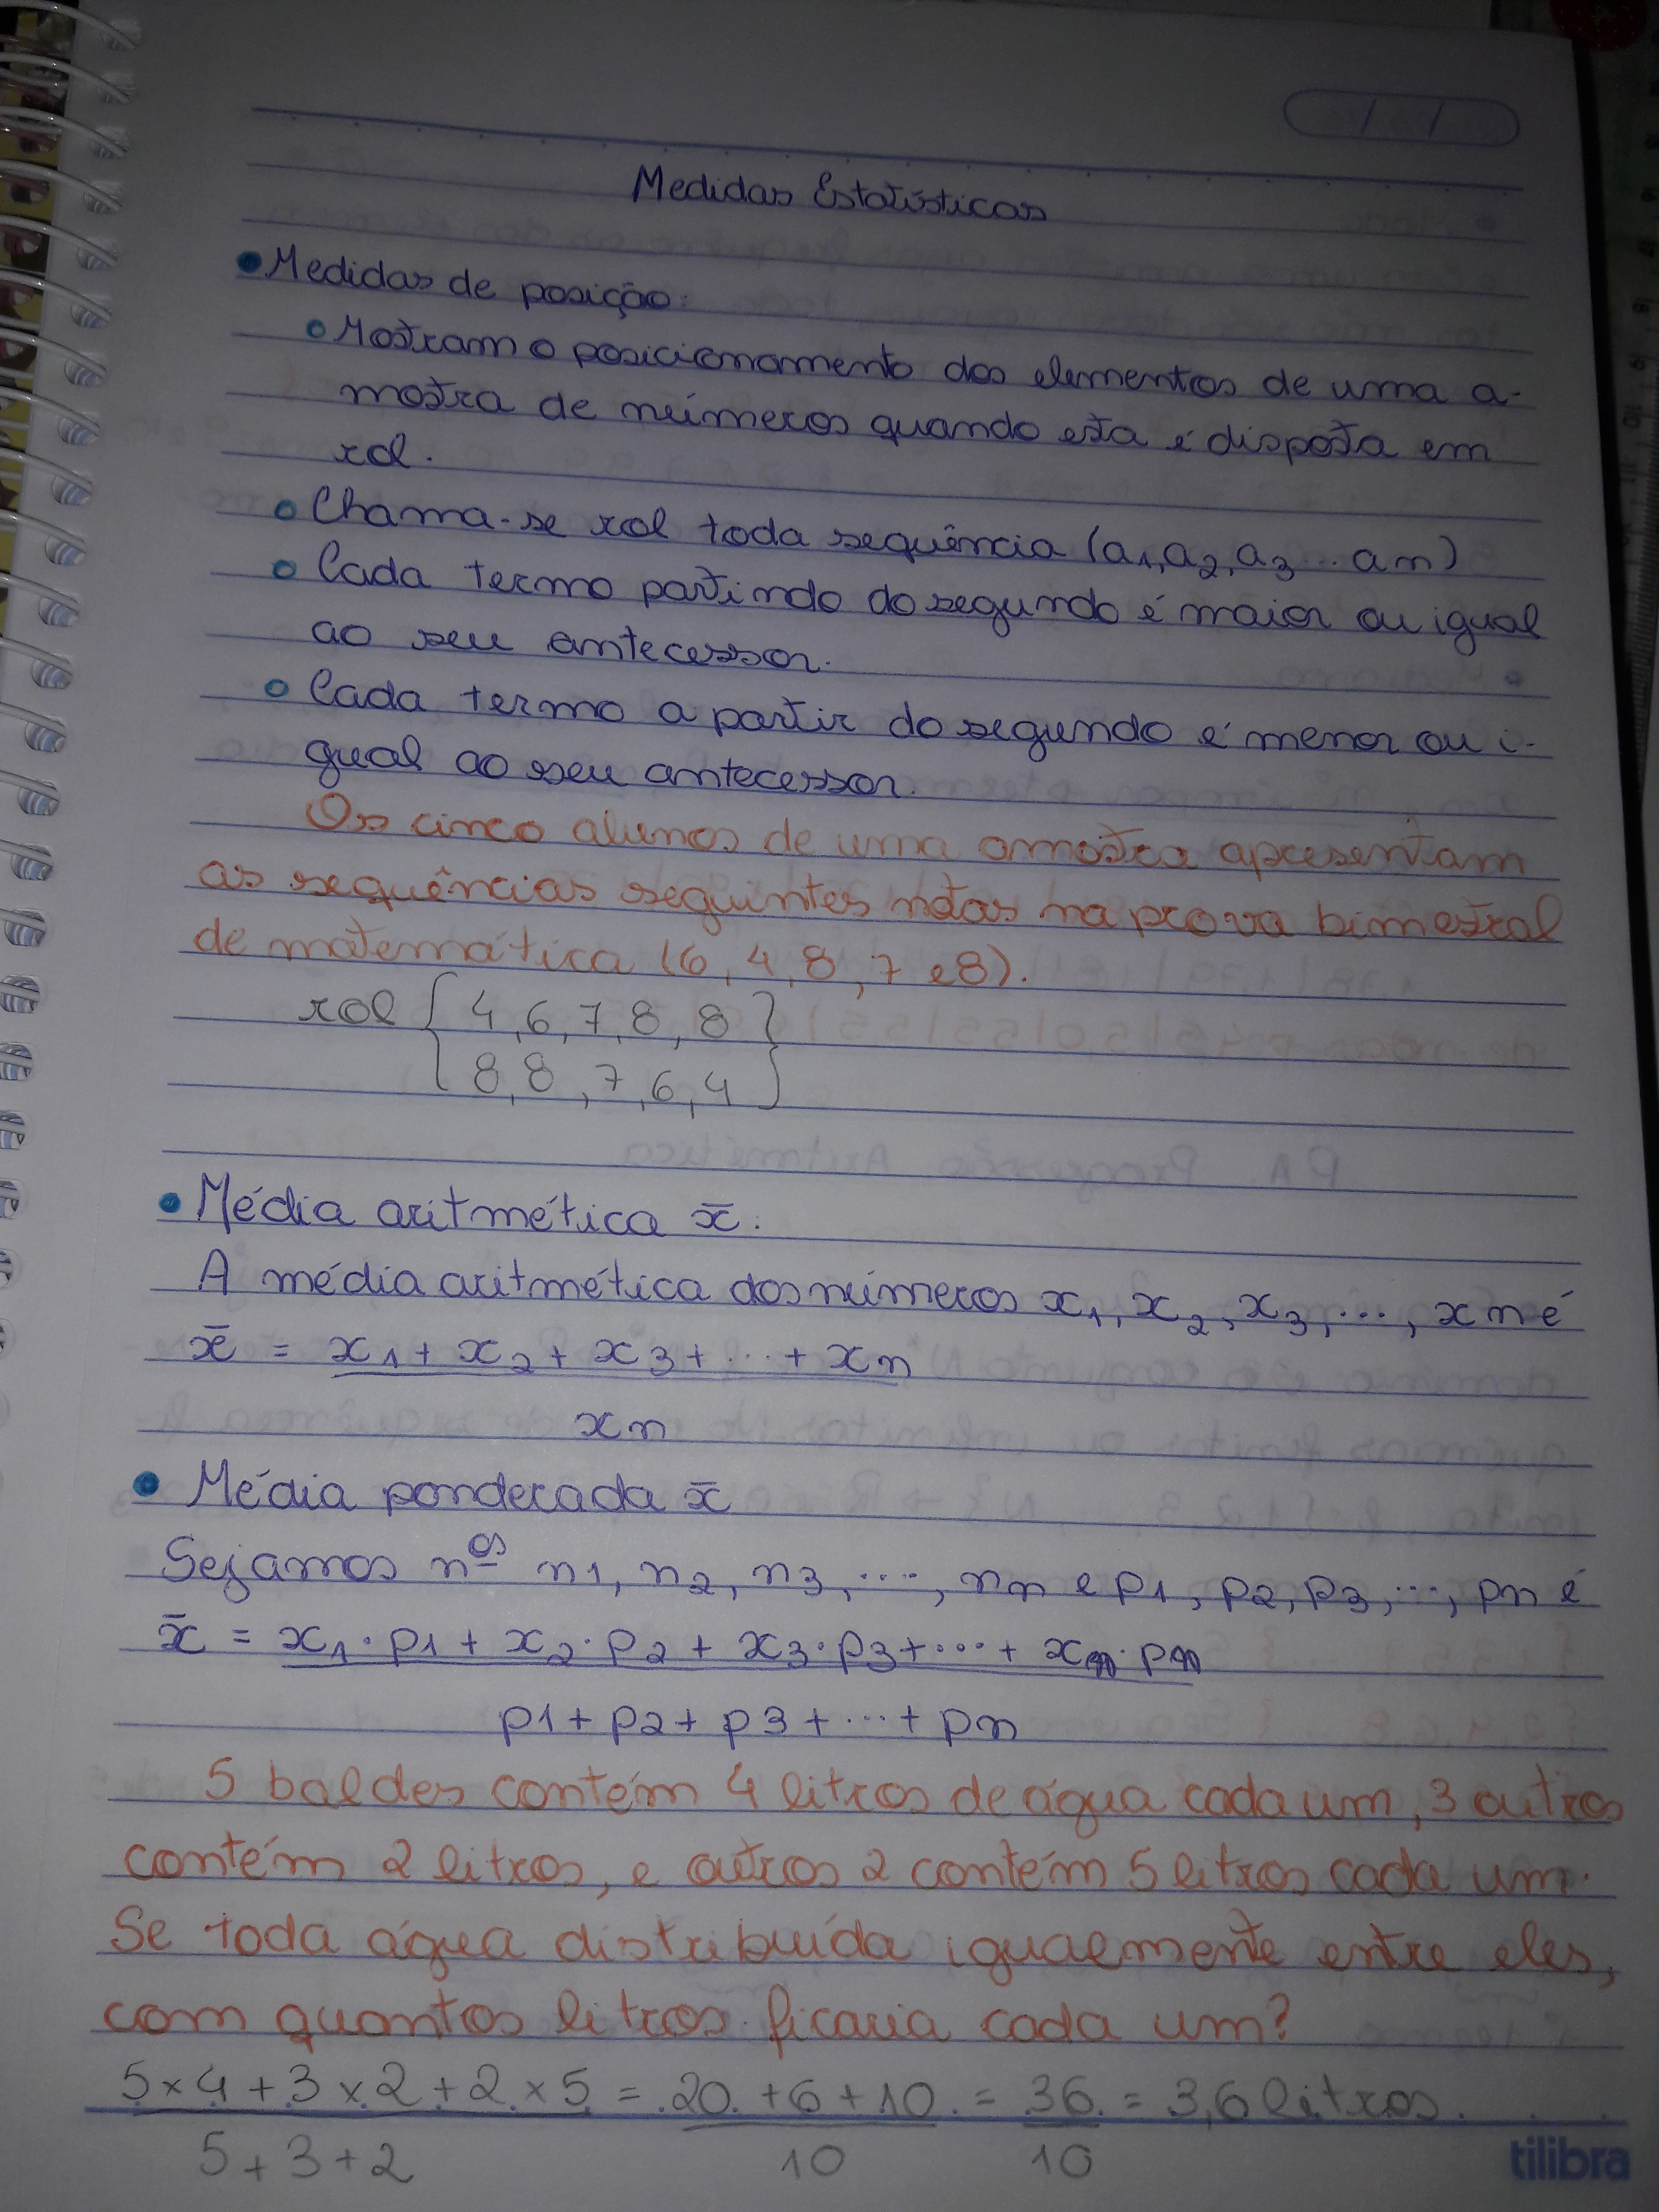 Medidas Estatísticas
• Medidas de posição:
o Mostram o posicionamento dos elementos de uma a-
mostra de números quando esta é disposta em
rol.
o Chama-se rol toda sequência (a1, a2, a3 ... an)
o Cada termo partindo do segundo é maior ou igual
ao seu antecessor.
o Cada termo a partir do segundo é menor ou i-
gual ao seu antecessor.
Os cinco alunos de uma amostra apresentam
as sequências seguintes notas na prova bimestral
de matemática (6, 4, 8, 7 e 8).
rol { 4, 6, 7, 8, 8 }
{ 8, 8, 7, 6, 4 }
• Média aritmética x̄:
A média aritmética dos números x1, x2, x3, ..., xn é
x̄ = x1 + x2 + x3 + ... + xn
xn
• Média ponderada x̄
Sejamos nos n1, n2, n3, ..., nn e p1, p2, p3, ..., pn é
x̄ = x1 · p1 + x2 · p2 + x3 · p3 + ... + xn · pn
p1 + p2 + p3 + ... + pn
5 baldes contém 4 litros de água cada um, 3 outros
contém 2 litros, e outros 2 contém 5 litros cada um.
Se toda água distribuída igualmente entre eles,
com quantos litros ficaria cada um?
5 x 4 + 3 x 2 + 2 x 5 = 20 + 6 + 10 = 36 = 3,6 litros.
5 + 3 + 2 10 10
tilibra